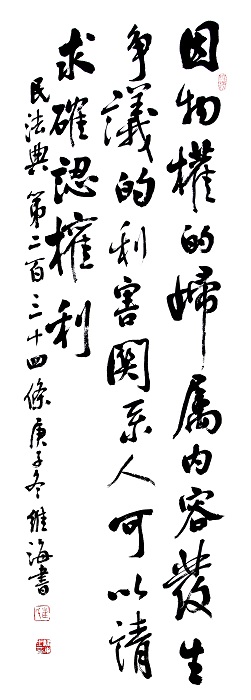 因物權的歸属内容發生
争議的利害關系人可以請
求確認權利
民法典 第二百三十四條 庚子冬維海書